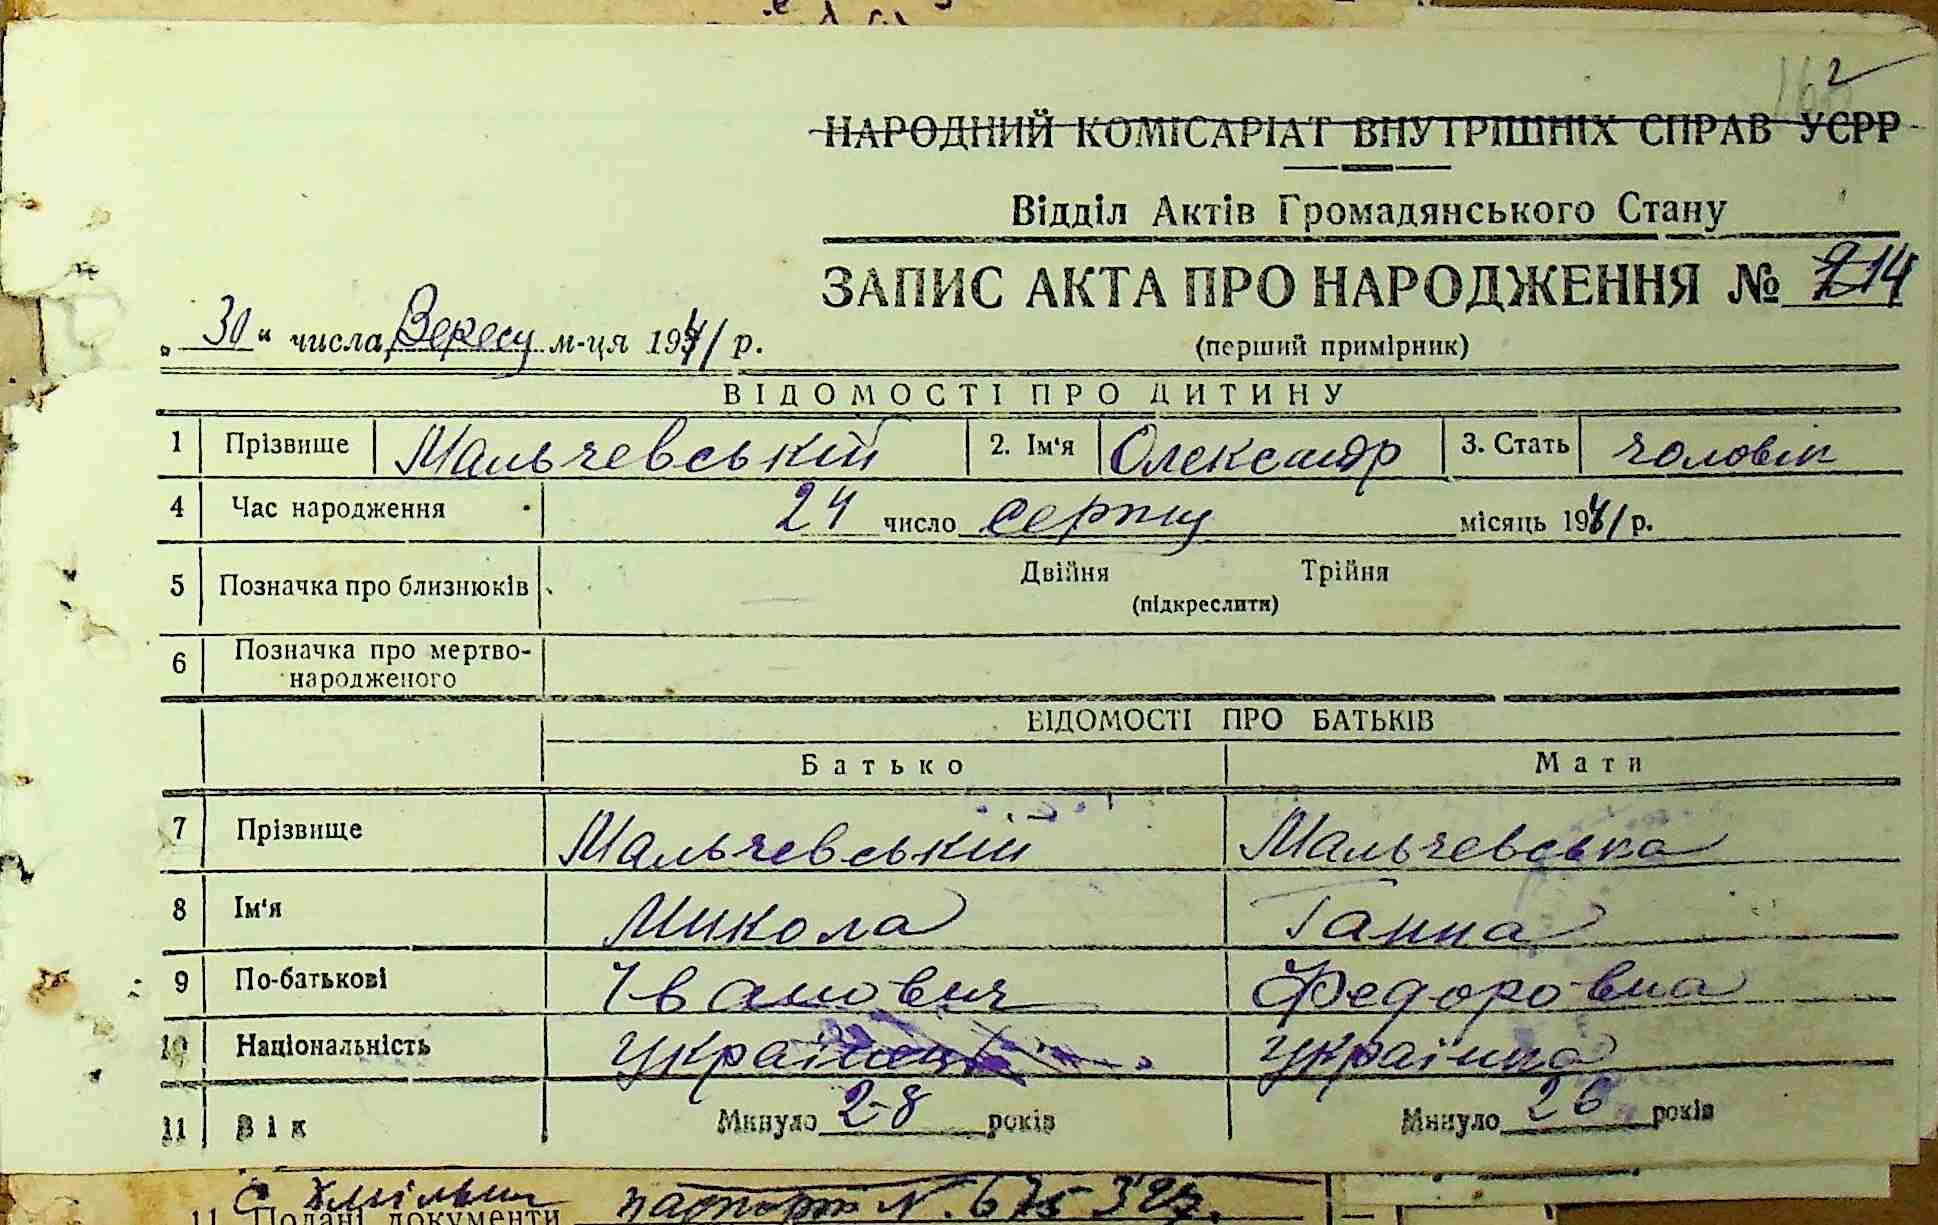 162
НАРОДНИЙ КОМІСАРІАТ ВНУТРІШНІХ СПРАВ УСРР
Відділ Актів Громадянського Стану
ЗАПИС АКТА ПРО НАРОДЖЕННЯ № 214
„ 30 “ числа Вересу м-ця 1941 р.
(перший примірник)
ВІДОМОСТІ ПРО ДИТИНУ
1 Прізвище Мальчевській 2. Ім'я Олександр 3. Стать чоловік
4 Час народження 24 число серпну місяць 1941 р.
5 Позначка про близнюків Двійня Трійня
(підкреслити)
6 Позначка про мертво-
народженого
ВІДОМОСТІ ПРО БАТЬКІВ
Батько Мати
7 Прізвище Мальчевській Мальчевська
8 Ім'я Микола Ганна
9 По-батькові Іванович Федоровна
10 Національність Українець Українка
11 Вік Минуло 28 років Минуло 26 років
с. Хмільник паспорт N.
11 Подані документи